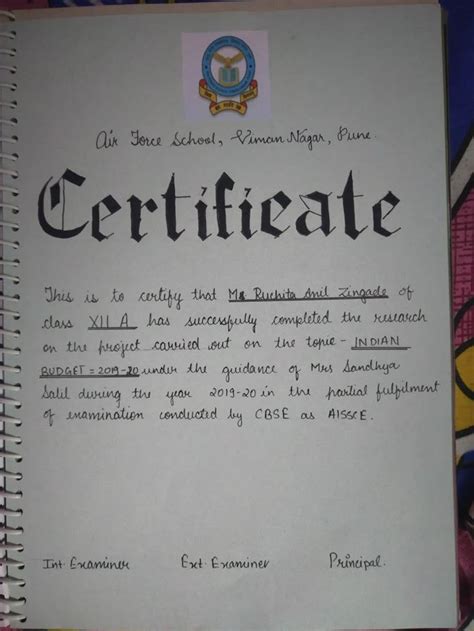 Air Force School, Viman Nagar, Pune.
Certificate
This is to certify that Ms Ruchita Anil Zingade of
class XII A has successfully completed the research
on the project carried out on the topic - INDIAN
BUDGET = 2019-20 under the guidance of Mrs Sandhya
Salil during the year 2019-20 in the partial fulfilment
of examination conducted by CBSE as AISSCE.
Int. Examiner Ext. Examiner Principal.